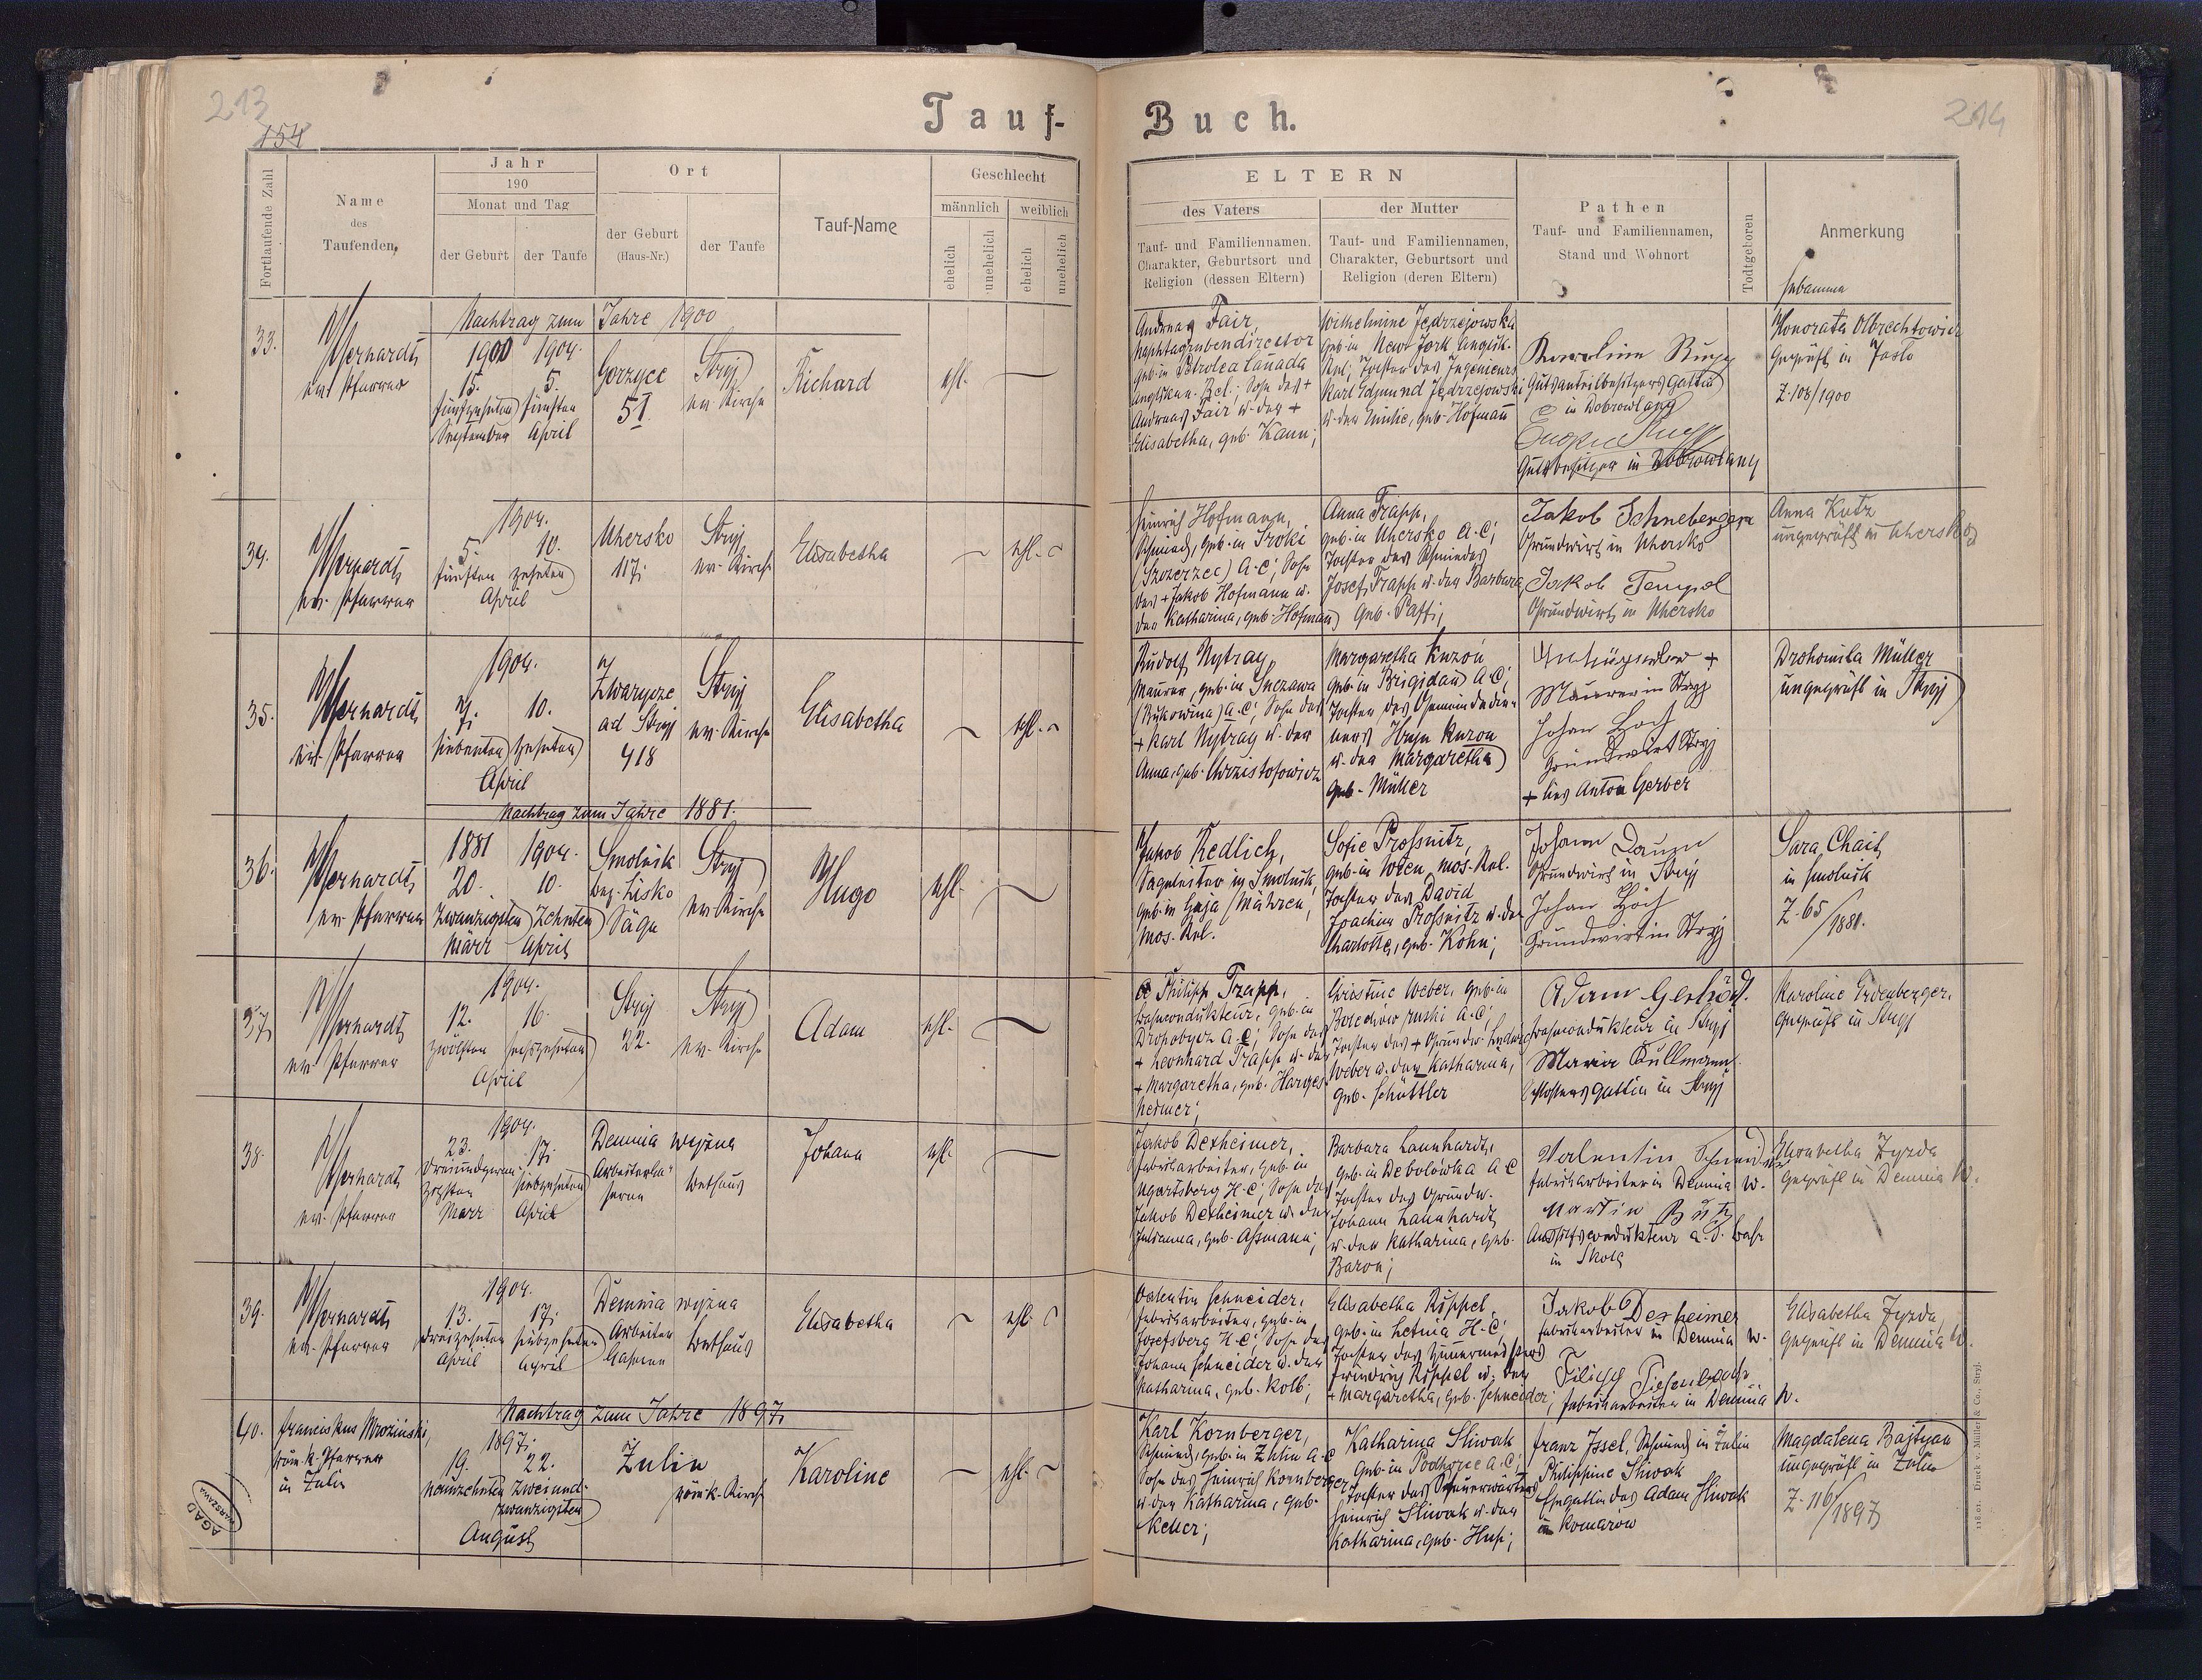 213
154
Tauf-
Fortlaufende Zahl
Name
des
Taufenden
Jahr
190
Monat und Tag
der Geburt
der Taufe
Ort
der Geburt
(Haus-Nr.)
der Taufe
Tauf-Name
Geschlecht
männlich
weiblich
ehelich
unehelich
ehelich
unehelich
Nachtrag zum Jahre 1900
33.
ev. Pfarrer
1900 1904.
15. 5.
fünfzehnten fünften
September April
Gorzyce
51
Stryj
ev. Kirche
Richard
ehl.
34.
ev. Pfarrer
1904.
5. 10.
fünften zehnten
April
Uhersko
117
Stryj
ev. Kirche
Elisabetha
ehl.
35.
ev. Pfarrer
1904.
7. 10.
siebenten zehnten
April
Zwarycze
ad Stryj
418
Stryj
ev. Kirche
Elisabetha
ehl.
Nachtrag zum Jahre 1881.
36.
ev. Pfarrer
1881 1904.
20. 10.
Zwanzigsten Zehnten
März April
Smolnik
Bez. Lisko
Säge
Stryj
ev. Kirche
Hugo
ehl.
37.
ev. Pfarrer
1904.
12. 16.
zwölften sechszehnten
April
Stryj
22.
Stryj
ev. Kirche
Adam
ehl.
38.
ev. Pfarrer
1904.
23. 17.
dreiundzwan- siebzehnten
zigsten
März April
Demnia wyżna
Bethaus
Johann
ehl.
39.
ev. Pfarrer
1904.
13. 17.
dreizehnten siebzehnten
April April
Demnia wyżna
Bethaus
Elisabetha
ehl.
Nachtrag zum Jahre 1897
40.
Franciskus Mroziński,
röm. k. Pfarrer
in Zulin
1897
19. 22.
neunzehnten zweiund-
zwanzigsten
August
Zulin
röm. k. Kirche
Karoline
ehl.
AGAD
WARSZAWA
Buch.
214
ELTERN
des Vaters
Tauf- und Familiennamen,
Charakter, Geburtsort und
Religion (dessen Eltern)
der Mutter
Tauf- und Familiennamen,
Charakter, Geburtsort und
Religion (deren Eltern)
Pathen
Tauf- und Familiennamen,
Stand und Wohnort
Todtgeboren
Anmerkung
Hebamme
Andreas Fair,
Naphtagrubendirector
geb. in Petrolea Canada
anglikan. Rel.; Sohn des +
Andreas Fair u. der +
Elisabetha, geb. Kann;
Wilhelmine Jędrzejowska
geb. in New Jork anglik.
Rel; Tochter des Ingenieurs
Karl Edmund Jędrzejowski
u. der Emilie, geb. Hofmann
Karoline Rupp
Gutsanteilbesitzers Gattin
in Dobrowlany
Gutsbesitzer in Dobrowlany
Honorata Olbrechtowicz
geprüft in Jasło
Z. 108/1900
Heinrich Hofmann,
Schmied, geb. in Troki
(Szczerzec) A.C; Sohn
des + Jakob Hofmann u.
der Katharina, geb. Hofmann
Anna Trapp,
geb. in Uhersko A.C;
Tochter des Schmiedes
Josef Trapp u. der Barbara
geb. Paffi;
Jakob Schneberger
Grundwirt in Uhersko
Jakob Tempel
Grundwirt in Uhersko
Anna Kutz
ungeprüft in Uhersko
Rudolf Nytray,
Maurer, geb. in Suczawa
(Bukowina) A.C; Sohn des
+ Karl Nytray u. der
Anna, geb. Chrzistofowicz
Margaretha Kuzon
geb. in Brigidau A.C;
Tochter des Gemeindedie-
ners Hryn Kuzon
u. der Margaretha
geb. Müller
Maurer in Stryj
Johan Hoch
Grundwirt Stryj
+ lies Anton Gerber
Drohomila Müller
ungeprüft in Stryj
Jakob Redlich,
Sägeleiter in Smolnik,
geb. in Gaja/Mähren,
mos. Rel.
Sofie Proßnitz,
geb. in Wien, mos. Rel.
Tochter des David
Joachim Proßnitz u. der
Charlotte, geb. Kohn;
Johann Daum
Grundwirt in Stryj
Johan Hoch
Grundwirt in Stryj
Sara Chait
in Smolnik
Z. 65/1881.
Philipp Trapp,
geb. in
Drohobycz A.C; Sohn des
+ Leonhard Trapp u. der
+ Margaretha, geb. Harges-
heimer;
Christine Weber, geb. in
Bolechów ruski A.C;
Tochter des + Grundw. Ludwig
Weber u. der Katharina,
geb. Schüttler
Adam Gerhöd.
in Stryj
Maria Kullmann
Schlossers Gattin in Stryj
Karoline Erdenberger,
geprüft in Stryj
Jakob Dexheimer,
Fabriksarbeiter, geb. in
Ugartsberg H.C; Sohn des
Jakob Dexheimer u. der
Julianna, geb. Aßmann;
Barbara Launhardt,
geb. in Debolówka A.C
Tochter des Grundw.
Johann Launhardt
u. der Katharina, geb.
Baron;
Valentin Schneider
Fabriksarbeiter in Demnia W.
Martin Bütz
Aushilfsconducteur a. d. Bahn
in Skole
Elisabetha Zyzda
geprüft in Demnia W.
Valentin Schneider,
Fabriksarbeiter, geb. in
Josefsberg H.C; Sohn des
Johann Schneider u. der
Katharina, geb. Kolb;
Elisabetha Köppel,
geb. in Letnia H.C;
Tochter des Zimmermeisters
Friedrich Köppel u. der
+ Margaretha, geb. Schneider;
Jakob Dexheimer
Fabriksarbeiter in Demnia W.
Filipp Tiefenbach
Fabriksarbeiter in Demnia W.
Elisabetha Zyzda,
geprüft in Demnia W.
Karl Kornberger,
Schmied, geb. in Zulin A.C
Sohn des Heinrich Kornberger
u. der Katharina, geb.
Keller;
Katharina Sliwak
geb. in Podhorce A.C;
Tochter des
Heinrich Sliwak u. der
Katharina, geb. Hup;
Franz Issel, Schmied in Zulin
Philippine Sliwak
Ehegattin des Adam Sliwak
in Komarow
Magdalena Bajtyan
ungeprüft in Zulin
Z. 116/1897
118.01. Druck v. Müller & Co., Stryj.